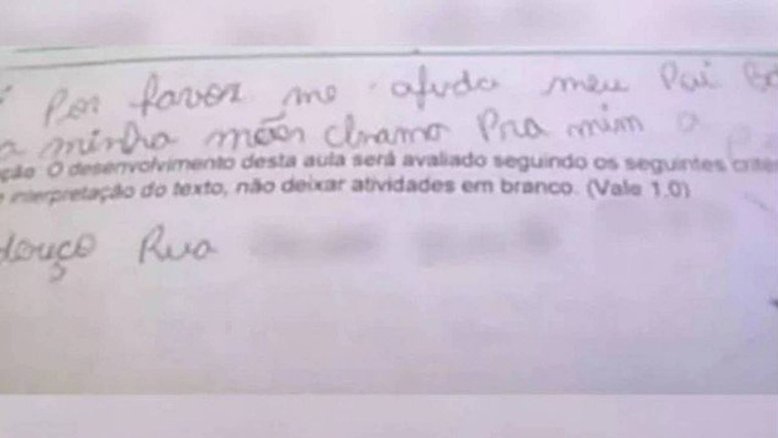 Por favor me ajuda meu Pai
a minha mães chramo Pra mim a
ção O desenvolvimento desta aula será avaliado seguindo os seguintes crité
interpretação do texto, não deixar atividades em branco. (Vale 1,0)
douço Rua